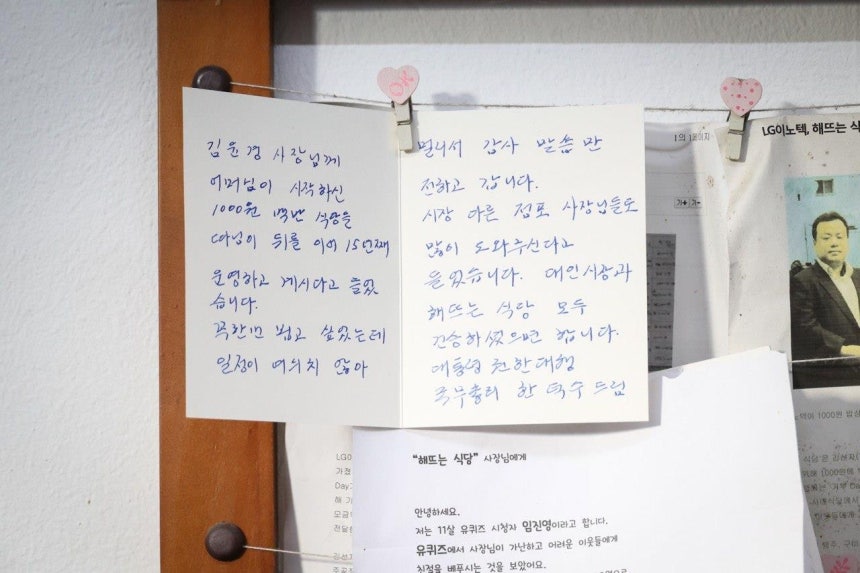 김윤경 사장님께
어머님이 시작하신
1000원 백반 식당을
따님이 뒤를 이어 15년째
운영하고 계시다고 들었
습니다.
꼭한번 뵙고 싶었는데
일정이 여의치 않아
멀리서 감사 말씀만
전하고 갑니다.
시장 다른 점포 사장님들도
많이 도와주신다고
들었습니다. 대인시장과
해뜨는 식당 모두
건승하셨으면 합니다.
대통령 권한대행
국무총리 한덕수 드림
1의 1페이지
가+ 가-
LG이노텍, 해뜨는 식
"해뜨는 식당" 사장님에게
안녕하세요.
저는 11살 유퀴즈 시청자 임진영이라고 합니다.
유퀴즈에서 사장님이 가난하고 어려운 이웃들에게
친절을 베푸시는 것을 보았어요.